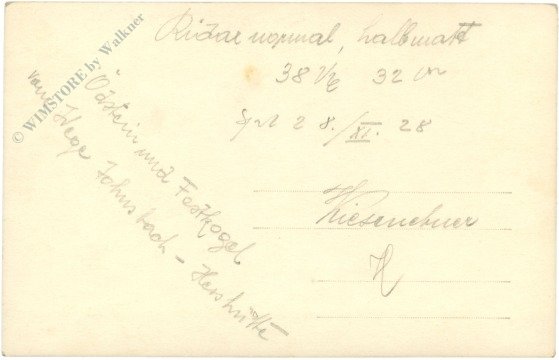 Ridax normal, halbmatt
38 1/2 32 cm
28./XI. 28
Ödstein und Festkogel
vom Wege Johnsbach - Hesshütte
H
© WIMSTORE by Walkner